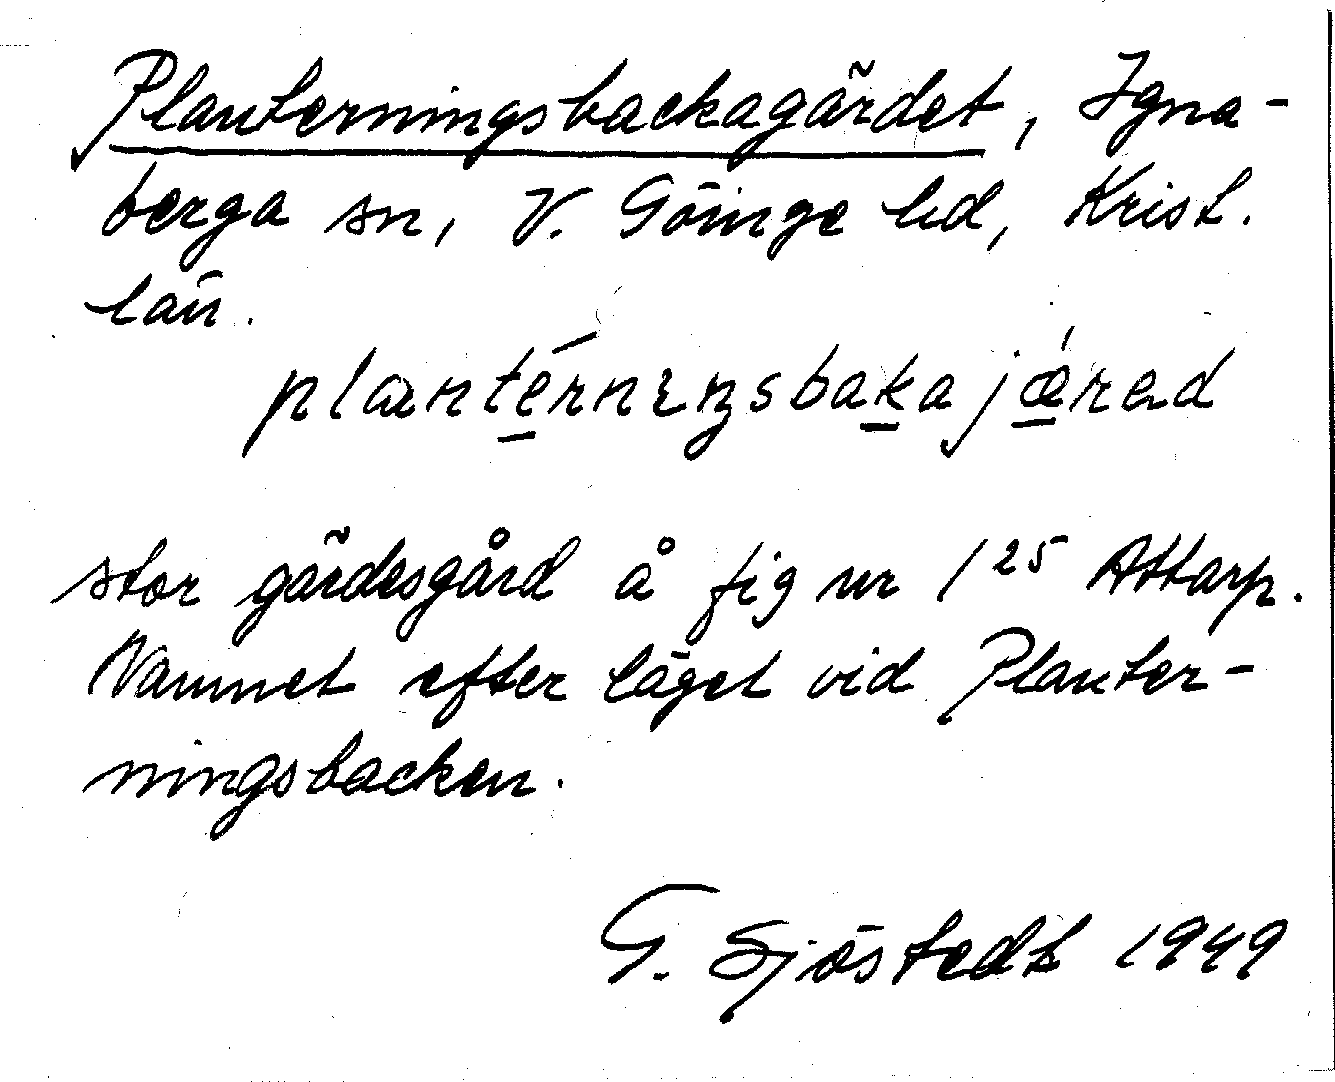 Planterningsbackagärdet, Igna-
berga sn, V. Göinge hd, Krist.
län.
plantérnıŋsbakajǽrəd
stor gärdesgård å fig nr 1²⁵ Attarp.
Namnet efter läget vid Planter-
ningsbacken.
G. Sjöstedt 1949